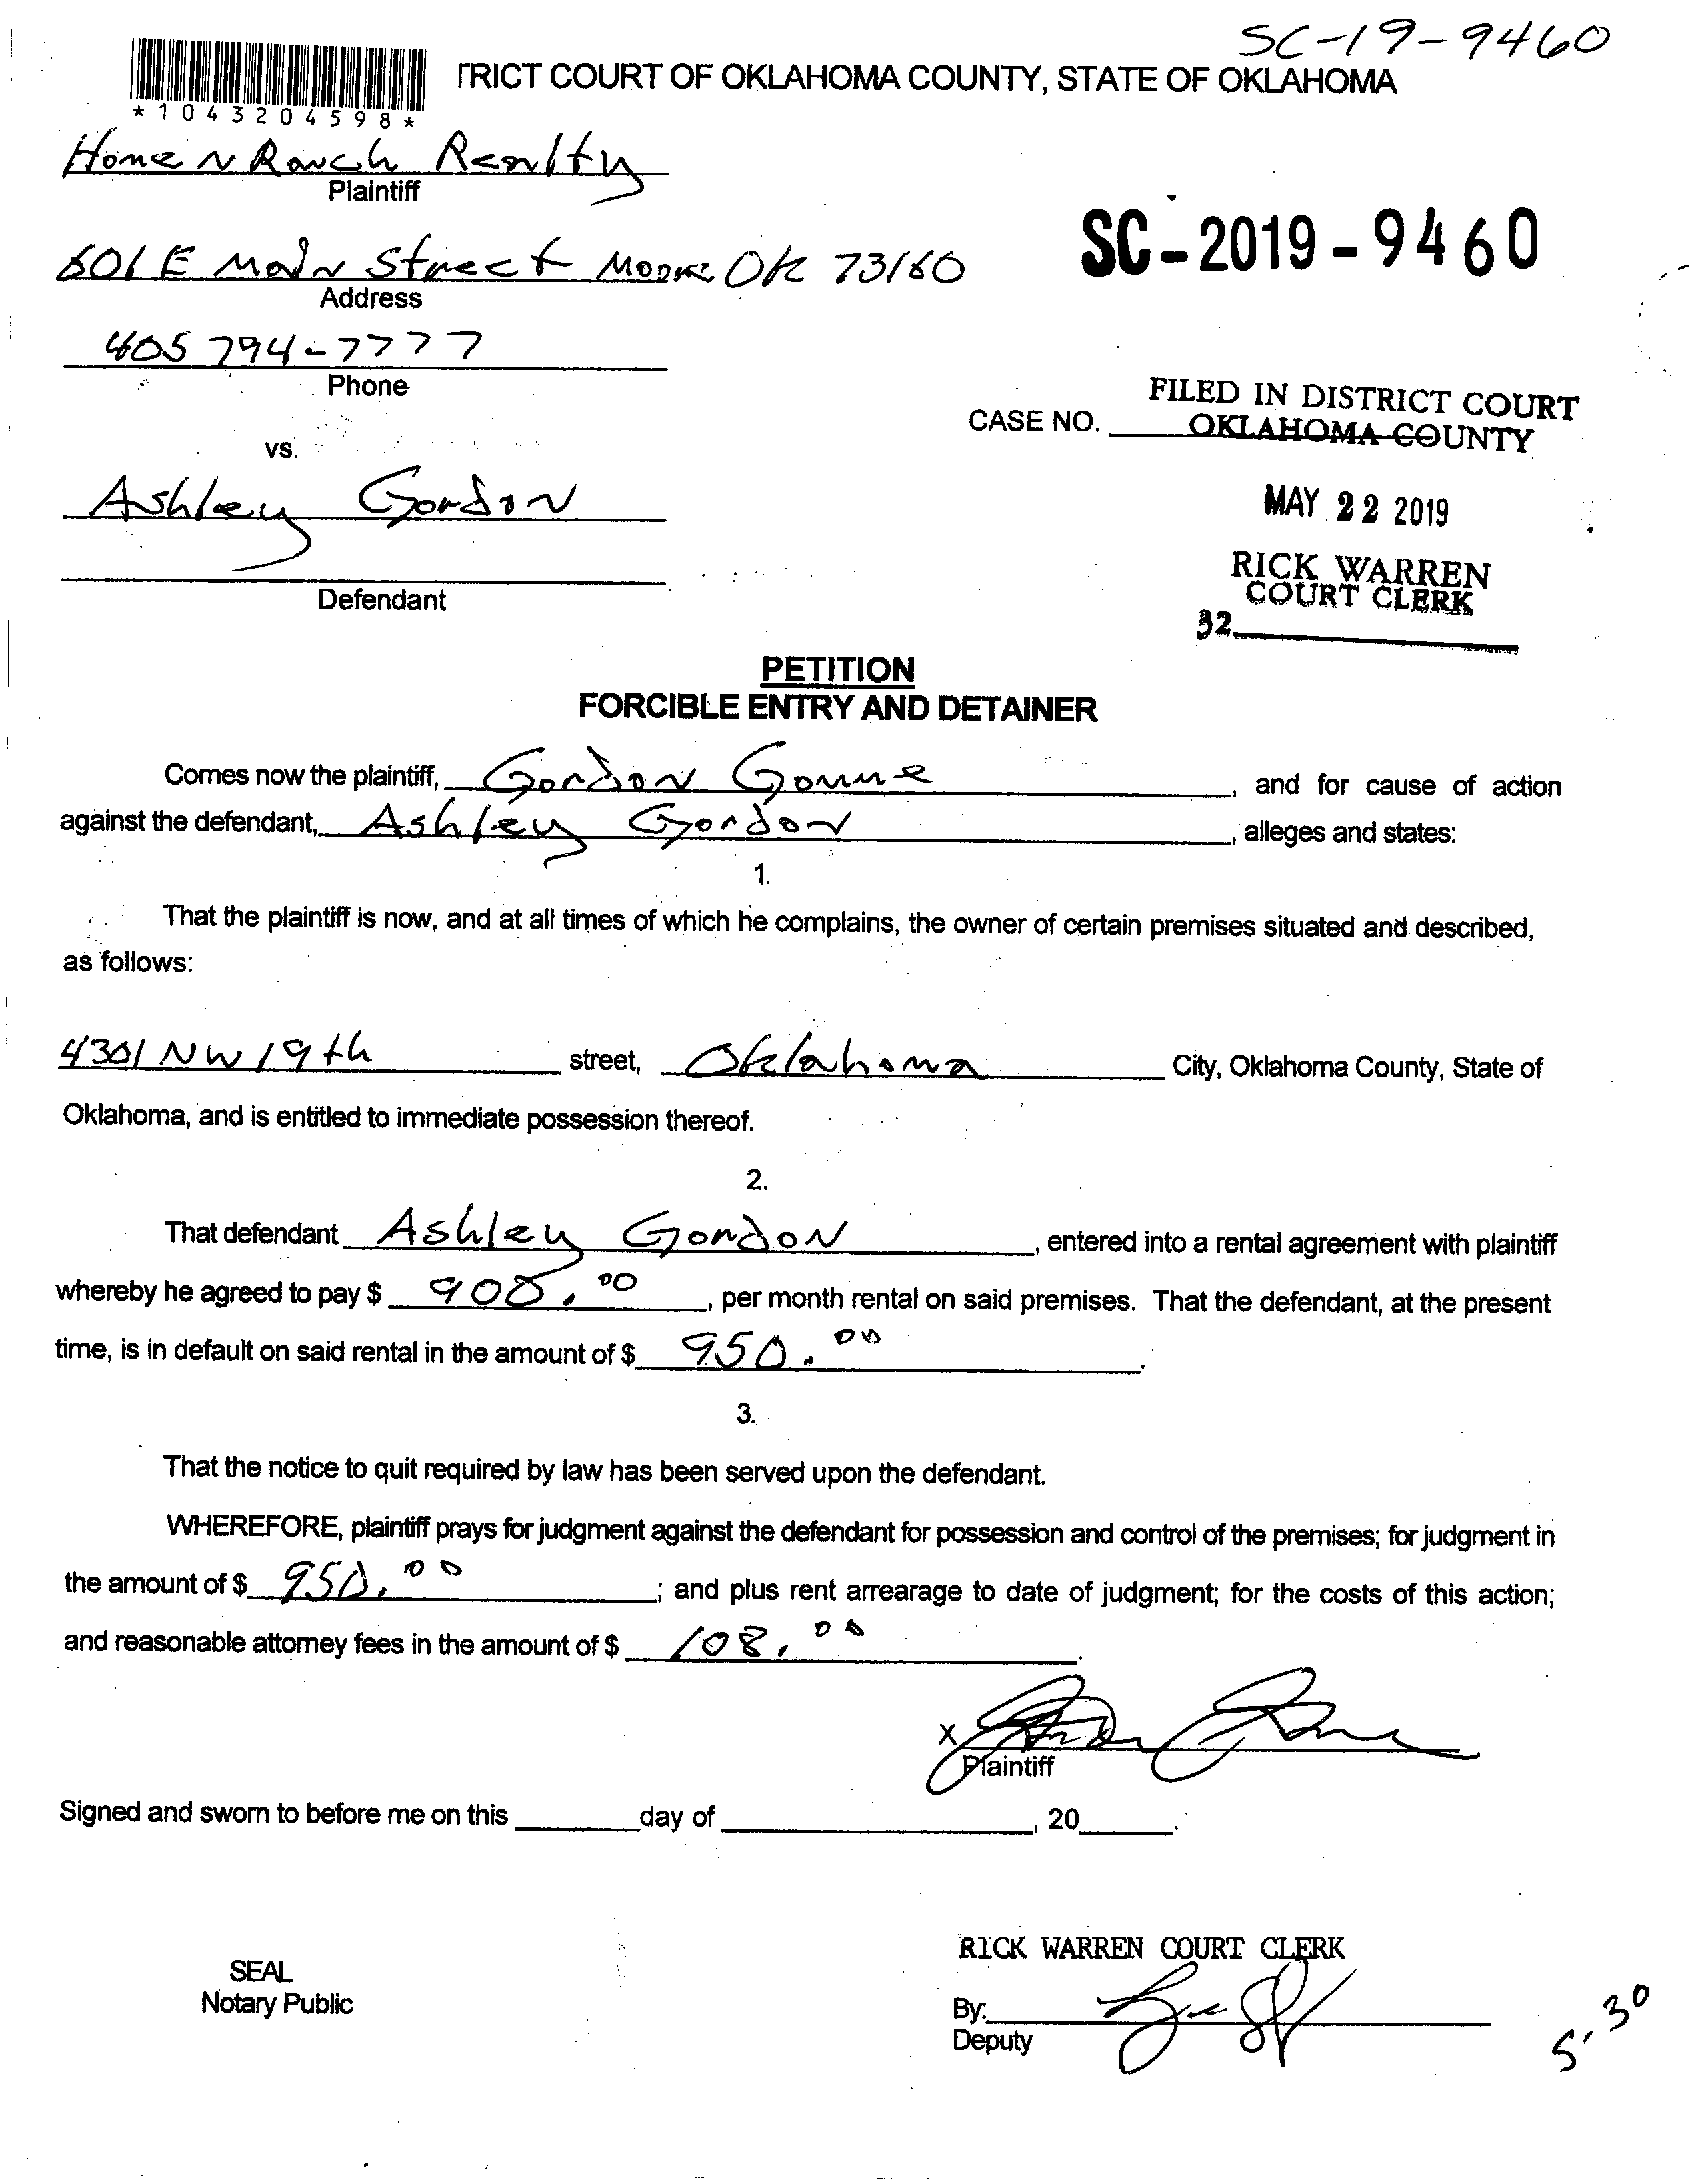 SC-19-9460
TRICT COURT OF OKLAHOMA COUNTY, STATE OF OKLAHOMA
*1043204598*
Home N Ranch Realty
Plaintiff
601 E Main Street Moore OK 73160
Address
SC-2019-9460
405 794-7777
Phone
FILED IN DISTRICT COURT
CASE NO. OKLAHOMA COUNTY
vs.
Ashley Gordon
MAY 22 2019
RICK WARREN
COURT CLERK
Defendant
32
PETITION
FORCIBLE ENTRY AND DETAINER
Comes now the plaintiff, Gordon Gorme, and for cause of action
against the defendant, Ashley Gordon, alleges and states:
1.
That the plaintiff is now, and at all times of which he complains, the owner of certain premises situated and described,
as follows:
4301 NW 19th street, Oklahoma City, Oklahoma County, State of
Oklahoma, and is entitled to immediate possession thereof.
2.
That defendant Ashley Gordon, entered into a rental agreement with plaintiff
whereby he agreed to pay $ 900.00, per month rental on said premises. That the defendant, at the present
time, is in default on said rental in the amount of $ 950.00.
3.
That the notice to quit required by law has been served upon the defendant.
WHEREFORE, plaintiff prays for judgment against the defendant for possession and control of the premises; for judgment in
the amount of $ 950.00; and plus rent arrearage to date of judgment; for the costs of this action;
and reasonable attorney fees in the amount of $ 108.00.
X
Plaintiff
Signed and sworn to before me on this day of , 20 .
RICK WARREN COURT CLERK
SEAL
Notary Public
By:
Deputy
5-30